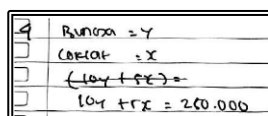 9 Bunga = y
Coklat = x
(10y + 5x) =
10y + 5x = 260.000